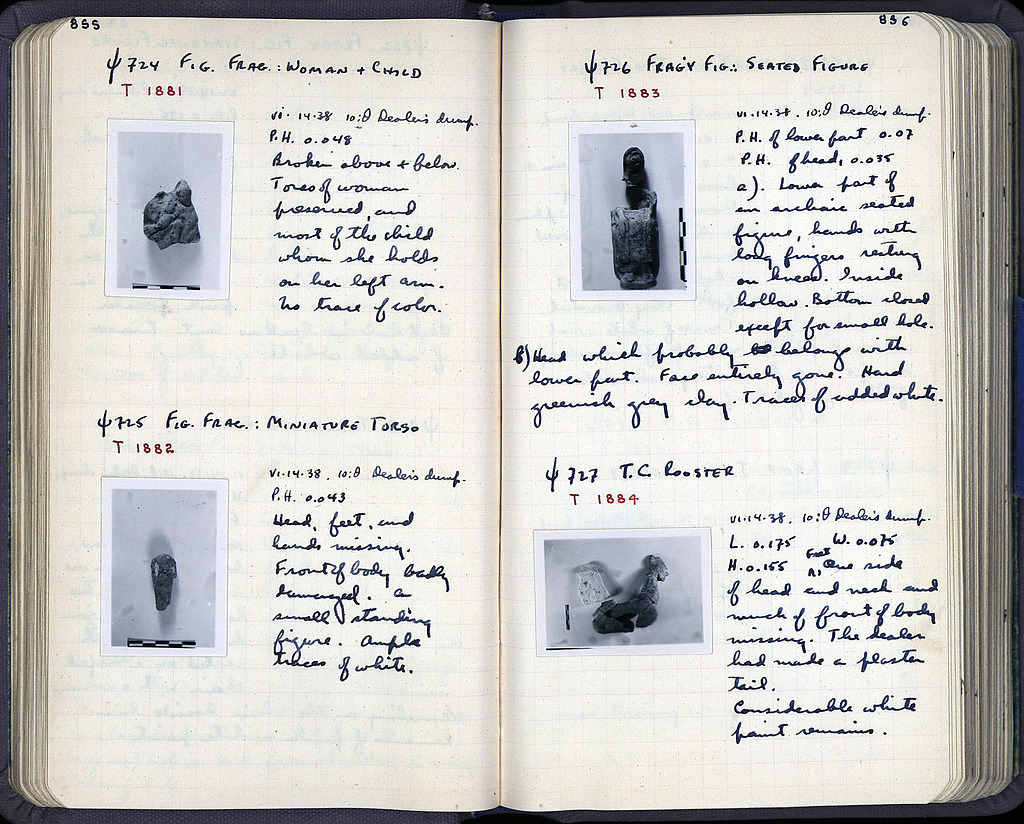 855
ψ724 FIG. FRAG.: WOMAN + CHILD
T 1881
VI·14·38 10:θ Dealer's dump.
P.H. 0.048
Broken above + below.
Torso of woman
preserved, and
most of the child
whom she holds
on her left arm.
No trace of color.
ψ725 FIG. FRAG.: MINIATURE TORSO
T 1882
VI·14·38. 10:θ Dealer's dump.
P.H. 0.043
Head, feet, and
hands missing.
Front of body badly
damaged. A
small standing
figure. Ample
traces of white.
836
ψ726 FRAG'Y FIG.: SEATED FIGURE
T 1883
VI·14·38. 10:θ Dealer's dump.
P.H. of lower part 0.07
P.H. of head, 0.035
a). Lower part of
an archaic seated
figure, hands with
long fingers resting
on knees. Inside
hollow. Bottom closed
except for small hole.
b) Head which probably belongs with
lower part. Face entirely gone. Hard
greenish grey clay. Traces of added white.
ψ727 T.C. ROOSTER
T 1884
VI·14·38. 10:θ Dealer's dump.
L. 0.175 W. 0.075
H. 0.155 Feet, One side
of head and neck and
much of front of body
missing. The dealer
had made a plaster
tail.
Considerable white
paint remains.